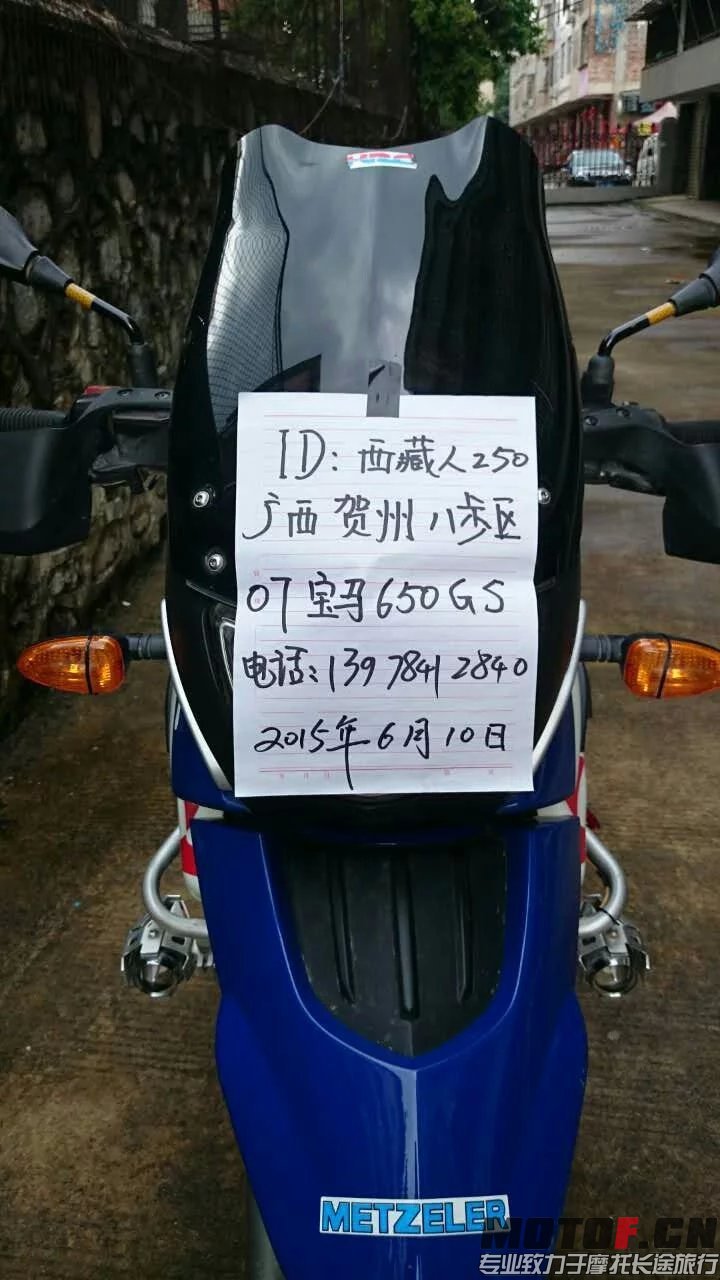 ID: 西藏人250
广西贺州八步区
07宝马650GS
电话:13978412840
2015年6月10日
METZELER
MOTOF.CN
专业致力于摩托长途旅行